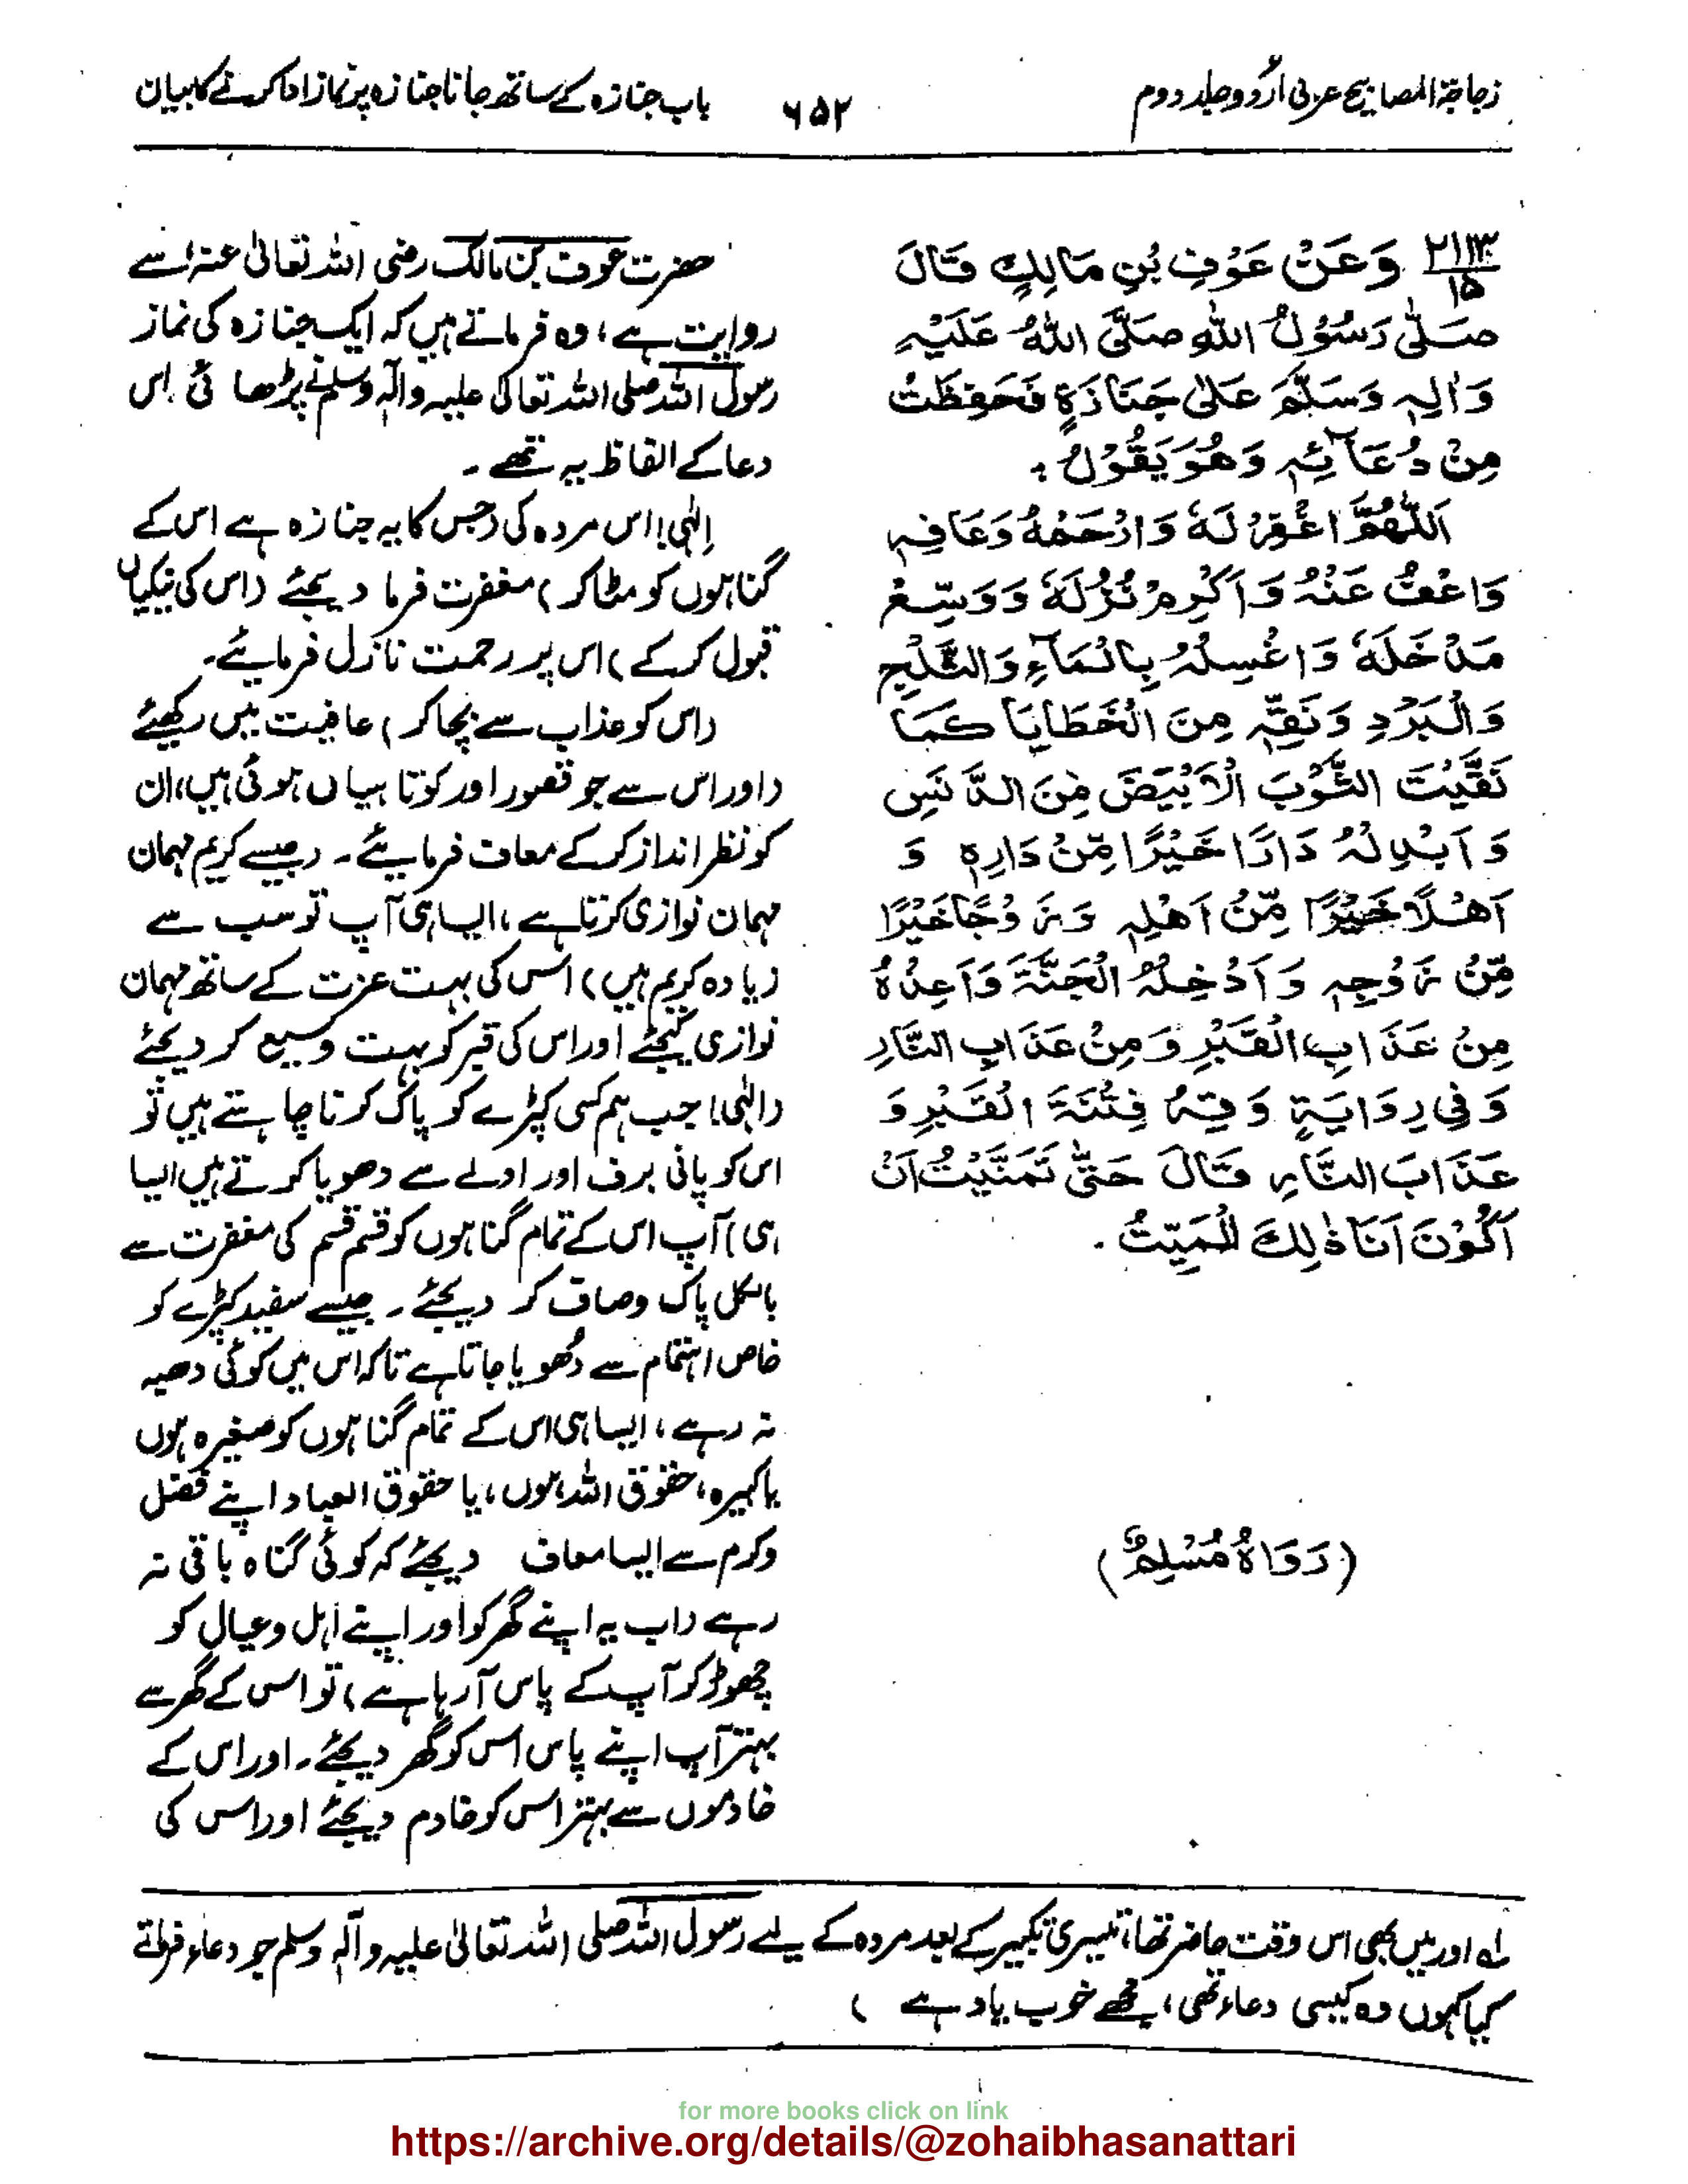 زجاجۃ المصابیح عربی اُردو جلد دوم
۶۵۲
باب جنازہ کے ساتھ جانا جنازہ پر نماز ادا کرنے کا بیان
۲۱۱۳
۱۵
وَعَنْ عَوْفِ بْنِ مَالِكٍ قَالَ
صَلّٰى رَسُوْلُ اللّٰهِ صَلَّى اللّٰهُ عَلَيْهِ
وَاٰلِهٖ وَسَلَّمَ عَلٰى جَنَازَةٍ فَحَفِظْتُ
مِنْ دُعَآئِهٖ وَهُوَ يَقُوْلُ :
اَللّٰهُمَّ اغْفِرْ لَهٗ وَارْحَمْهُ وَعَافِهٖ
وَاعْفُ عَنْهُ وَاَكْرِمْ نُزُلَهٗ وَوَسِّعْ
مَدْخَلَهٗ وَاغْسِلْهُ بِالْمَآءِ وَالثَّلْجِ
وَالْبَرْدِ وَنَقِّهٖ مِنَ الْخَطَايَا كَمَا
نَقَّيْتَ الثَّوْبَ الْاَبْيَضَ مِنَ الدَّنَسِ
وَاَبْدِلْهُ دَارًا خَيْرًا مِّنْ دَارِهٖ وَ
اَهْلًا خَيْرًا مِّنْ اَهْلِهٖ وَزَوْجًا خَيْرًا
مِّنْ زَوْجِهٖ وَاَدْخِلْهُ الْجَنَّةَ وَاَعِذْهُ
مِنْ عَذَابِ الْقَبْرِ وَمِنْ عَذَابِ النَّارِ
وَفِيْ رِوَايَةٍ وَقِهٖ فِتْنَةَ الْقَبْرِ وَ
عَذَابَ النَّارِ قَالَ حَتّٰى تَمَنَّيْتُ اَنْ
اَكُوْنَ اَنَا ذٰلِكَ الْمَيِّتُ .
(رَوَاهُ مُسْلِمٌ)
حضرت عوف بن مالک رضی اللہ تعالیٰ عنہ، سے
روایت ہے، وہ فرماتے ہیں کہ ایک جنازہ کی نماز
رسول اللہ صلی اللہ تعالیٰ علیہ وآلہٖ وسلم نے پڑھائی اس
دعا کے الفاظ یہ تھے ۔
اِلٰہی! اس مردہ کی (جس کا یہ جنازہ ہے اس کے
گناہوں کو مٹا کر) مغفرت فرما دیجئے (اس کی نیکیاں
قبول کر کے) اس پر رحمت نازل فرمایئے۔
(اس کو عذاب سے بچا کر) عافیت میں رکھیئے
(اور اس سے جو قصور اور کوتاہیاں ہوئی ہیں، ان
کو نظر انداز کر کے معاف فرمایئے ۔ (جیسے کریم مہمان
مہمان نوازی کرتا ہے، ایسا ہی آپ تو سب سے
زیادہ کریم ہیں) اس کی بہت عزت کے ساتھ مہمان
نوازی کیجئے اور اس کی قبر کو بہت وسیع کر دیجئے
(الٰہی! جب ہم کسی کپڑے کو پاک کرنا چاہتے ہیں تو
اس کو پانی برف اور اولے سے دھویا کرتے ہیں ایسا
ہی) آپ اس کے تمام گناہوں کو قسم قسم کی مغفرت سے
بالکل پاک وصاف کر دیجئے ۔ جیسے سفید کپڑے کو
خاص اہتمام سے دُھویا جاتا ہے تاکہ اس میں کوئی دھبہ
نہ رہے، ایسا ہی اس کے تمام گناہوں کو صغیرہ ہوں
یا کبیرہ، حقوق اللہ ہوں، یا حقوق العباد اپنے فضل
وکرم سے ایسا معاف دیجئے کہ کوئی گناہ باقی نہ
رہے (اب یہ اپنے گھر کو اور اپنے اہل وعیال کو
چھوڑ کر آپ کے پاس آ رہا ہے) تو اس کے گھر سے
بہتر آپ اپنے پاس اس کو گھر دیجئے۔ اور اس کے
خادموں سے بہتر اس کو خادم دیجئے اور اس کی
لہ اور میں بھی اس وقت حاضر تھا، تیسری تکبیر کے بعد مردہ کے لیے رسول اللہ صلی اللہ تعالیٰ علیہ وآلہٖ وسلم جو دعاء فرمائے
کیا کہوں وہ کیسی دعاء تھی، مجھے خوب یاد ہے )
for more books click on link
https://archive.org/details/@zohaibhasanattari